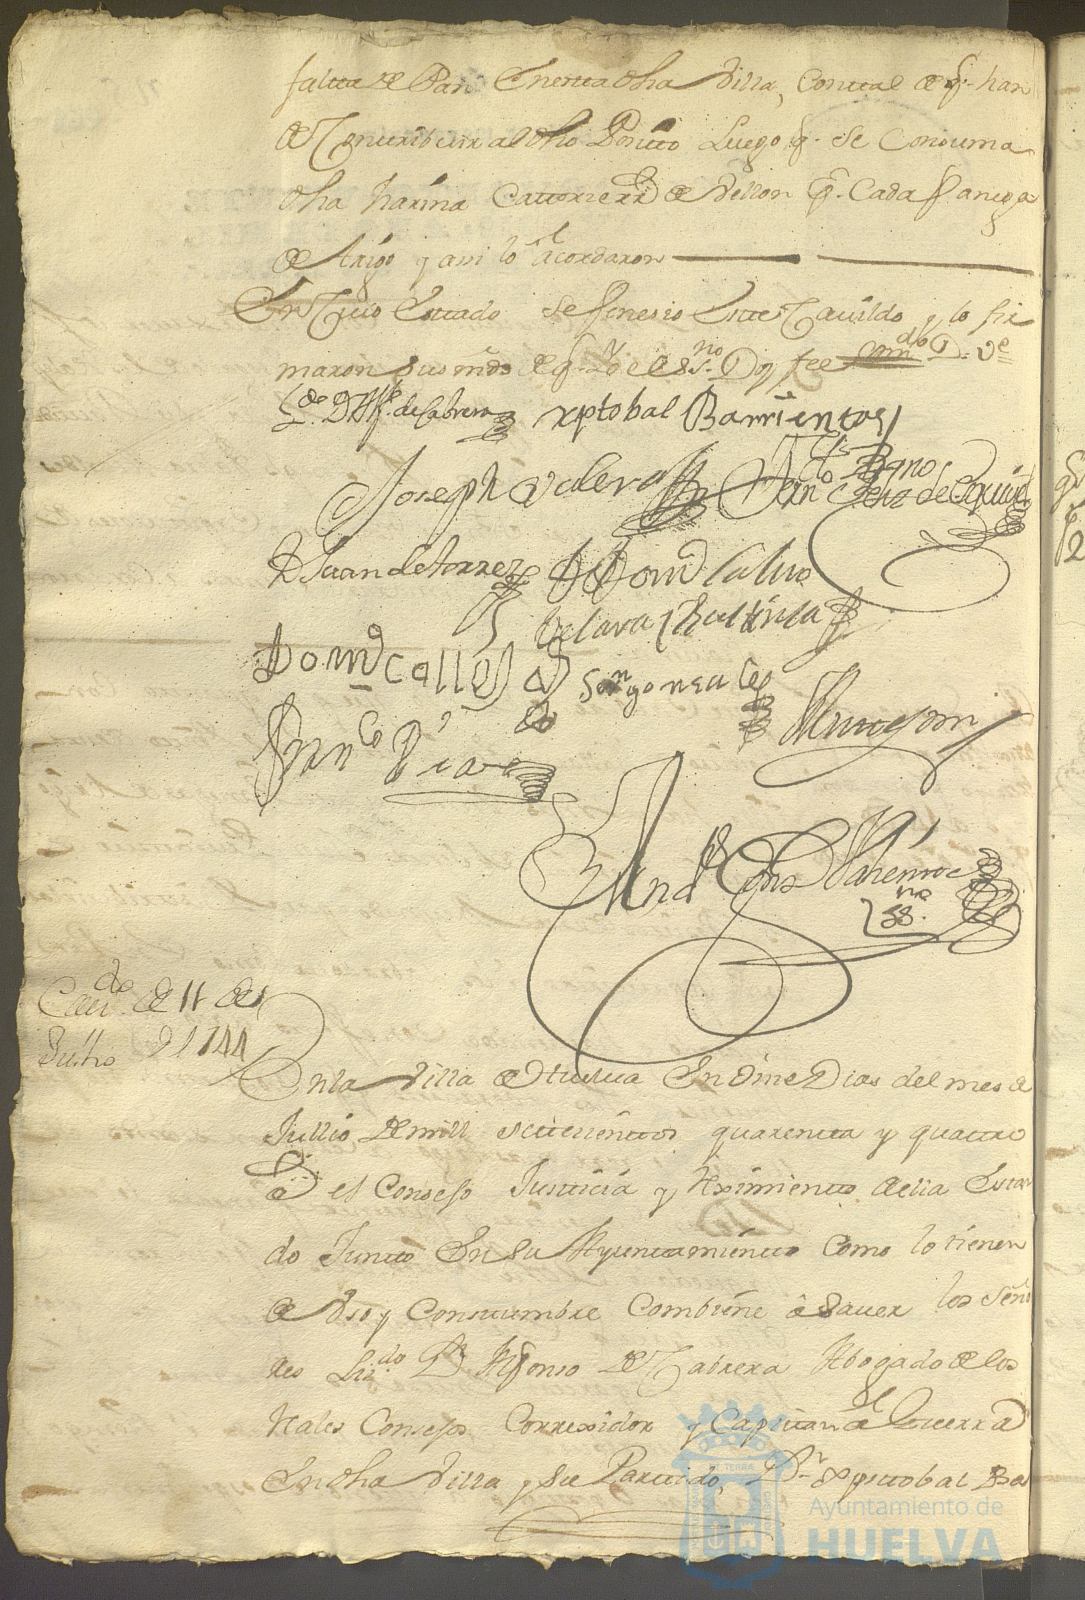 falta de Pan En esta dha Villa, Con tal de q. han
de Contribuir al dho Posito Luego q. se Consuma
dha harina Catorze rr.s de Vellon p.r Cada fanega
de trigo y assi lo acordaron
En Cuio Estado se feneсio Este Cavildo y lo fir
maron sus mds de q. Yo el ess.no Doy fee
L.do D. Alf.o de Cabrera xptobal Barrientos
Joseph Valera
D Juan de torres D Dom.o Calvo
de Lara
Dom.o Calles gonzales
Fran.co Diaz
And.s
ss.no
Cav.do de 11 de
Jullio D 1744
En la Villa de Huelva En Onze Dias del mes de
Jullio De mill setezientos quarenta y quatro
a.s el Consejo Justicia y Reximiento della Estan
do Junto En su Ayuntamiento como lo tienen
de Uso y Constumbre Combiene a saver los Seño
res Liz.do D.n Alfonso De Cabrera Abogado de los
Reales Consejos Correxidor y Capitan a Guerra
En dha Villa y su Partido, D.n Xptobal Ba
Ayuntamiento de
HUELVA